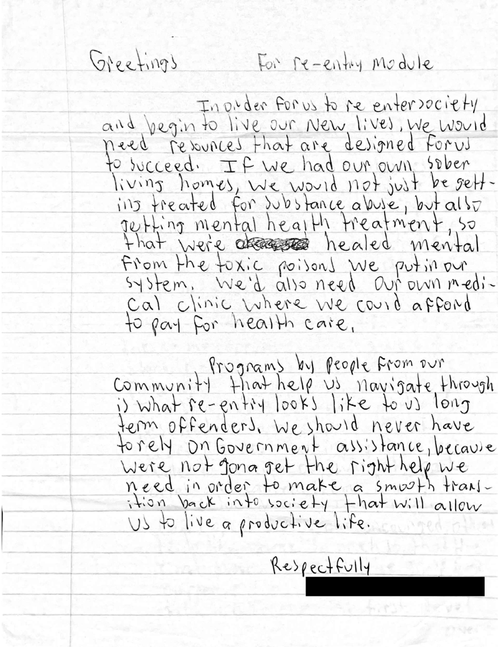 Greetings For re-entry module
In order for us to re enter society
and begin to live our New lives, we would
need resources that are designed for us
to succeed. If we had our own sober
living homes, we would not just be gett-
ing treated for substance abuse, but also
getting mental health treatment, so
that were healed mental
from the toxic poisons we put in our
system. We'd also need our own medi-
cal clinic where we could afford
to pay for health care.
Programs by people from our
community that help us navigate through
is what re-entry looks like to us long
term offenders. We should never have
to rely on Government assistance, because
were not gona get the right help we
need in order to make a smooth trans-
ition back into society that will allow
us to live a productive life.
Respectfully